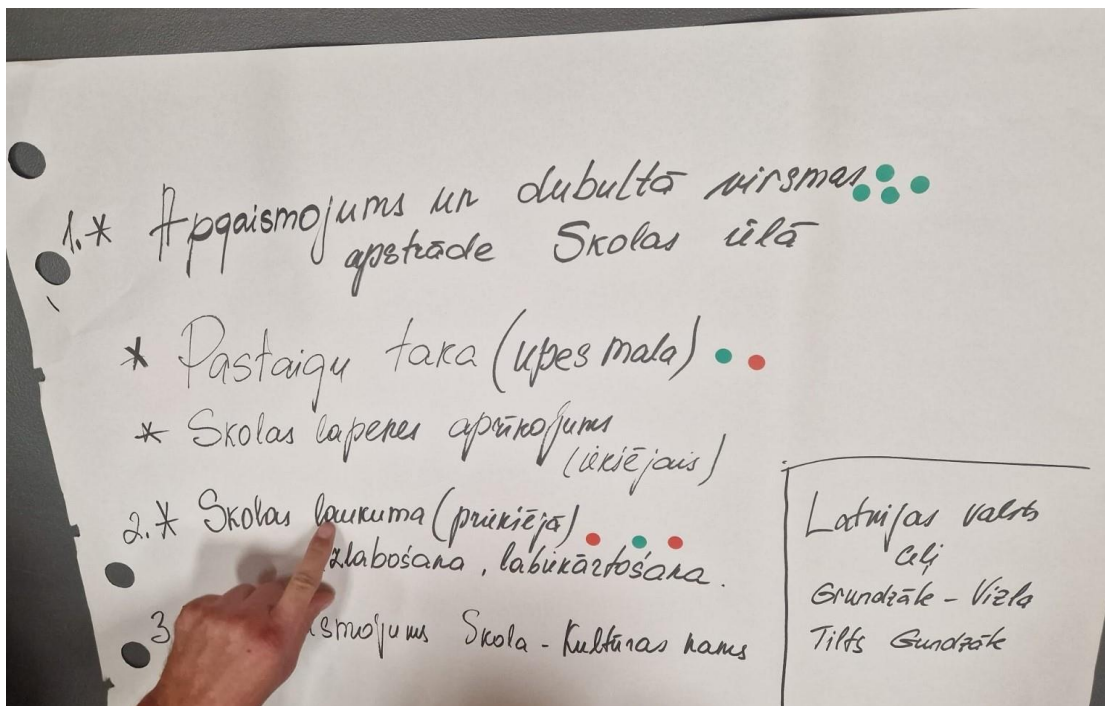 1.* Apgaismojums un dubultā virsmas
apstrāde Skolas ielā
* Pastaigu taka (upes mala)
* Skolas lapenes aprīkojums
(iekšējais)
2.* Skolas laukuma (priekšējā)
zlabošana, labiekārtošana.
3 smojums Skola - Kultūras nams
Latvijas valsts
ceļi
Grundzāle - Vizla
Tilts Gundzāle